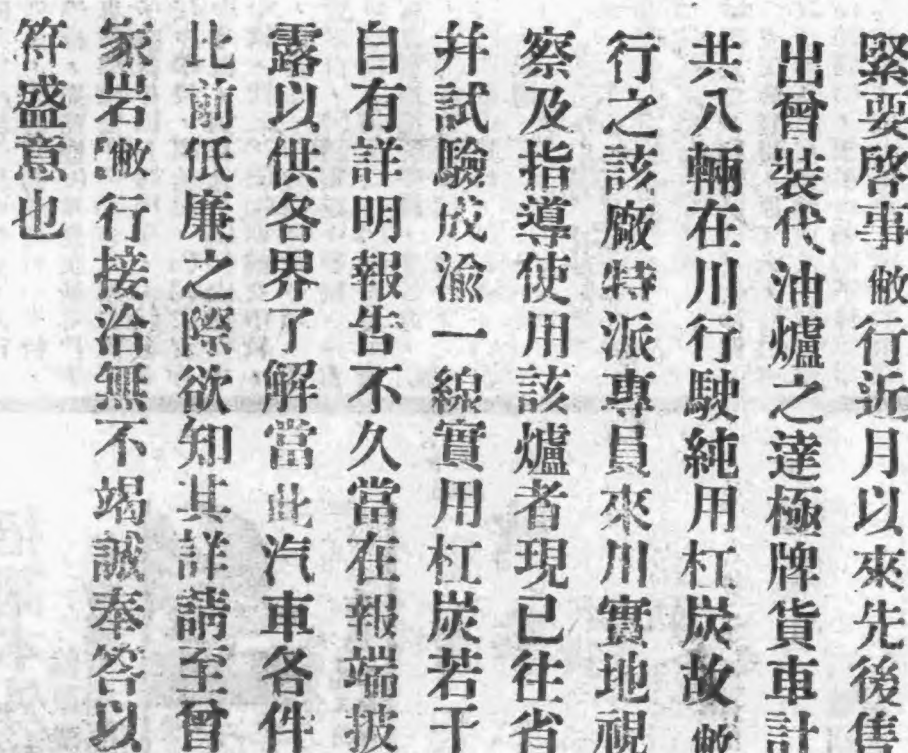 緊要啓事敝行近月以來先後售
出曾裝代油爐之達極牌貨車計
共八輛在川行駛純用杠炭故敝
行之該廠特派專員來川實地視
察及指導使用該爐者現已往省
幷試驗成渝一線實用杠炭若干
自有詳明報告不久當在報端披
露以供各界了解當此汽車各件
比前低廉之際欲知其詳請至曾
家岩敝行接洽無不竭誠奉答以
符盛意也